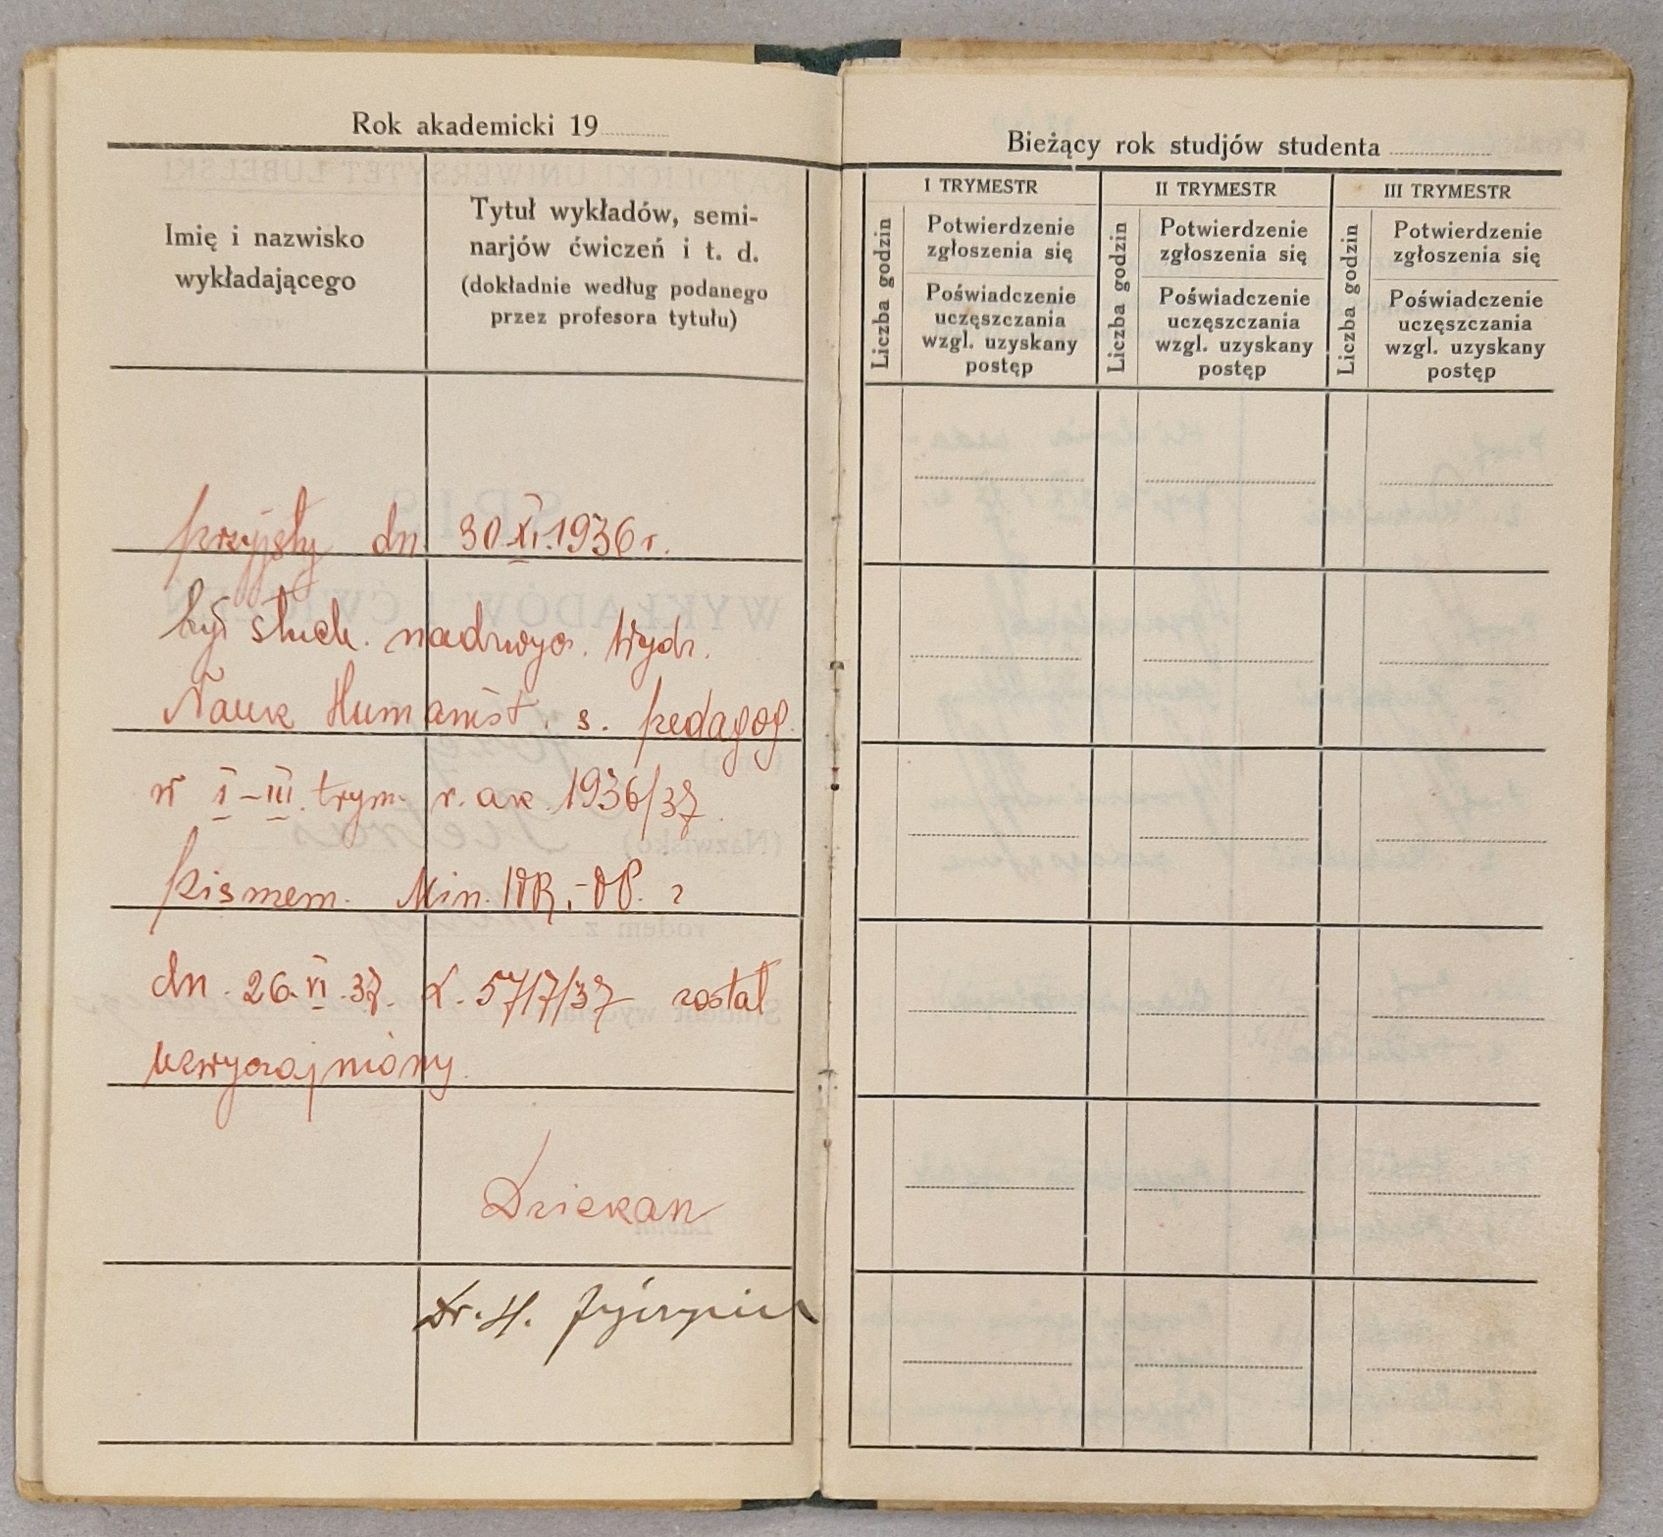 Rok akademicki 19
Imię i nazwisko
wykładającego
Tytuł wykładów, semi-
narjów ćwiczeń i t. d.
(dokładnie według podanego
przez profesora tytułu)
przyjęty dn 30 XI. 1936 r.
był słuch. nadzwycz. Wydz.
Nauk Humanist. s. pedagog.
w I-III. trym. r. ak. 1936/37.
pismem. Min. WR.-OP. z
dn. 26. VI. 37. L. 57/7/37 został
uzwyczajniony.
Dziekan
Dr. H.
Bieżący rok studjów studenta
I TRYMESTR
Liczba godzin
Potwierdzenie
zgłoszenia się
Poświadczenie
uczęszczania
wzgl. uzyskany
postęp
II TRYMESTR
Liczba godzin
Potwierdzenie
zgłoszenia się
Poświadczenie
uczęszczania
wzgl. uzyskany
postęp
III TRYMESTR
Liczba godzin
Potwierdzenie
zgłoszenia się
Poświadczenie
uczęszczania
wzgl. uzyskany
postęp